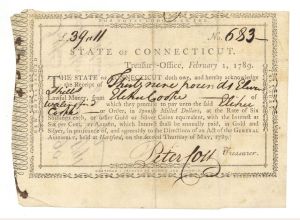 £. 39..11 No. 683
STATE OF CONNECTICUT.
Treasurer's-Office, February 1, 1789.
THE STATE OF CONNECTICUT doth owe, and hereby acknowledge
the Receipt of Thirty nine pounds
Lawful Money, from
which they promise to pay unto the said
or Order, in Spanish milled Dollars, at the Rate of Six
Shillings each, or other Gold or Silver Coins equivalent, with the Interest at
Six per Cent. per Annum, which Interest shall be annually paid, in Gold and
Silver, in pursuance of, and agreeable to the Directions of an Act of the General
Assembly, held at Hartford, on the second Thursday of May, 1789.
Peter Colt Treasurer.